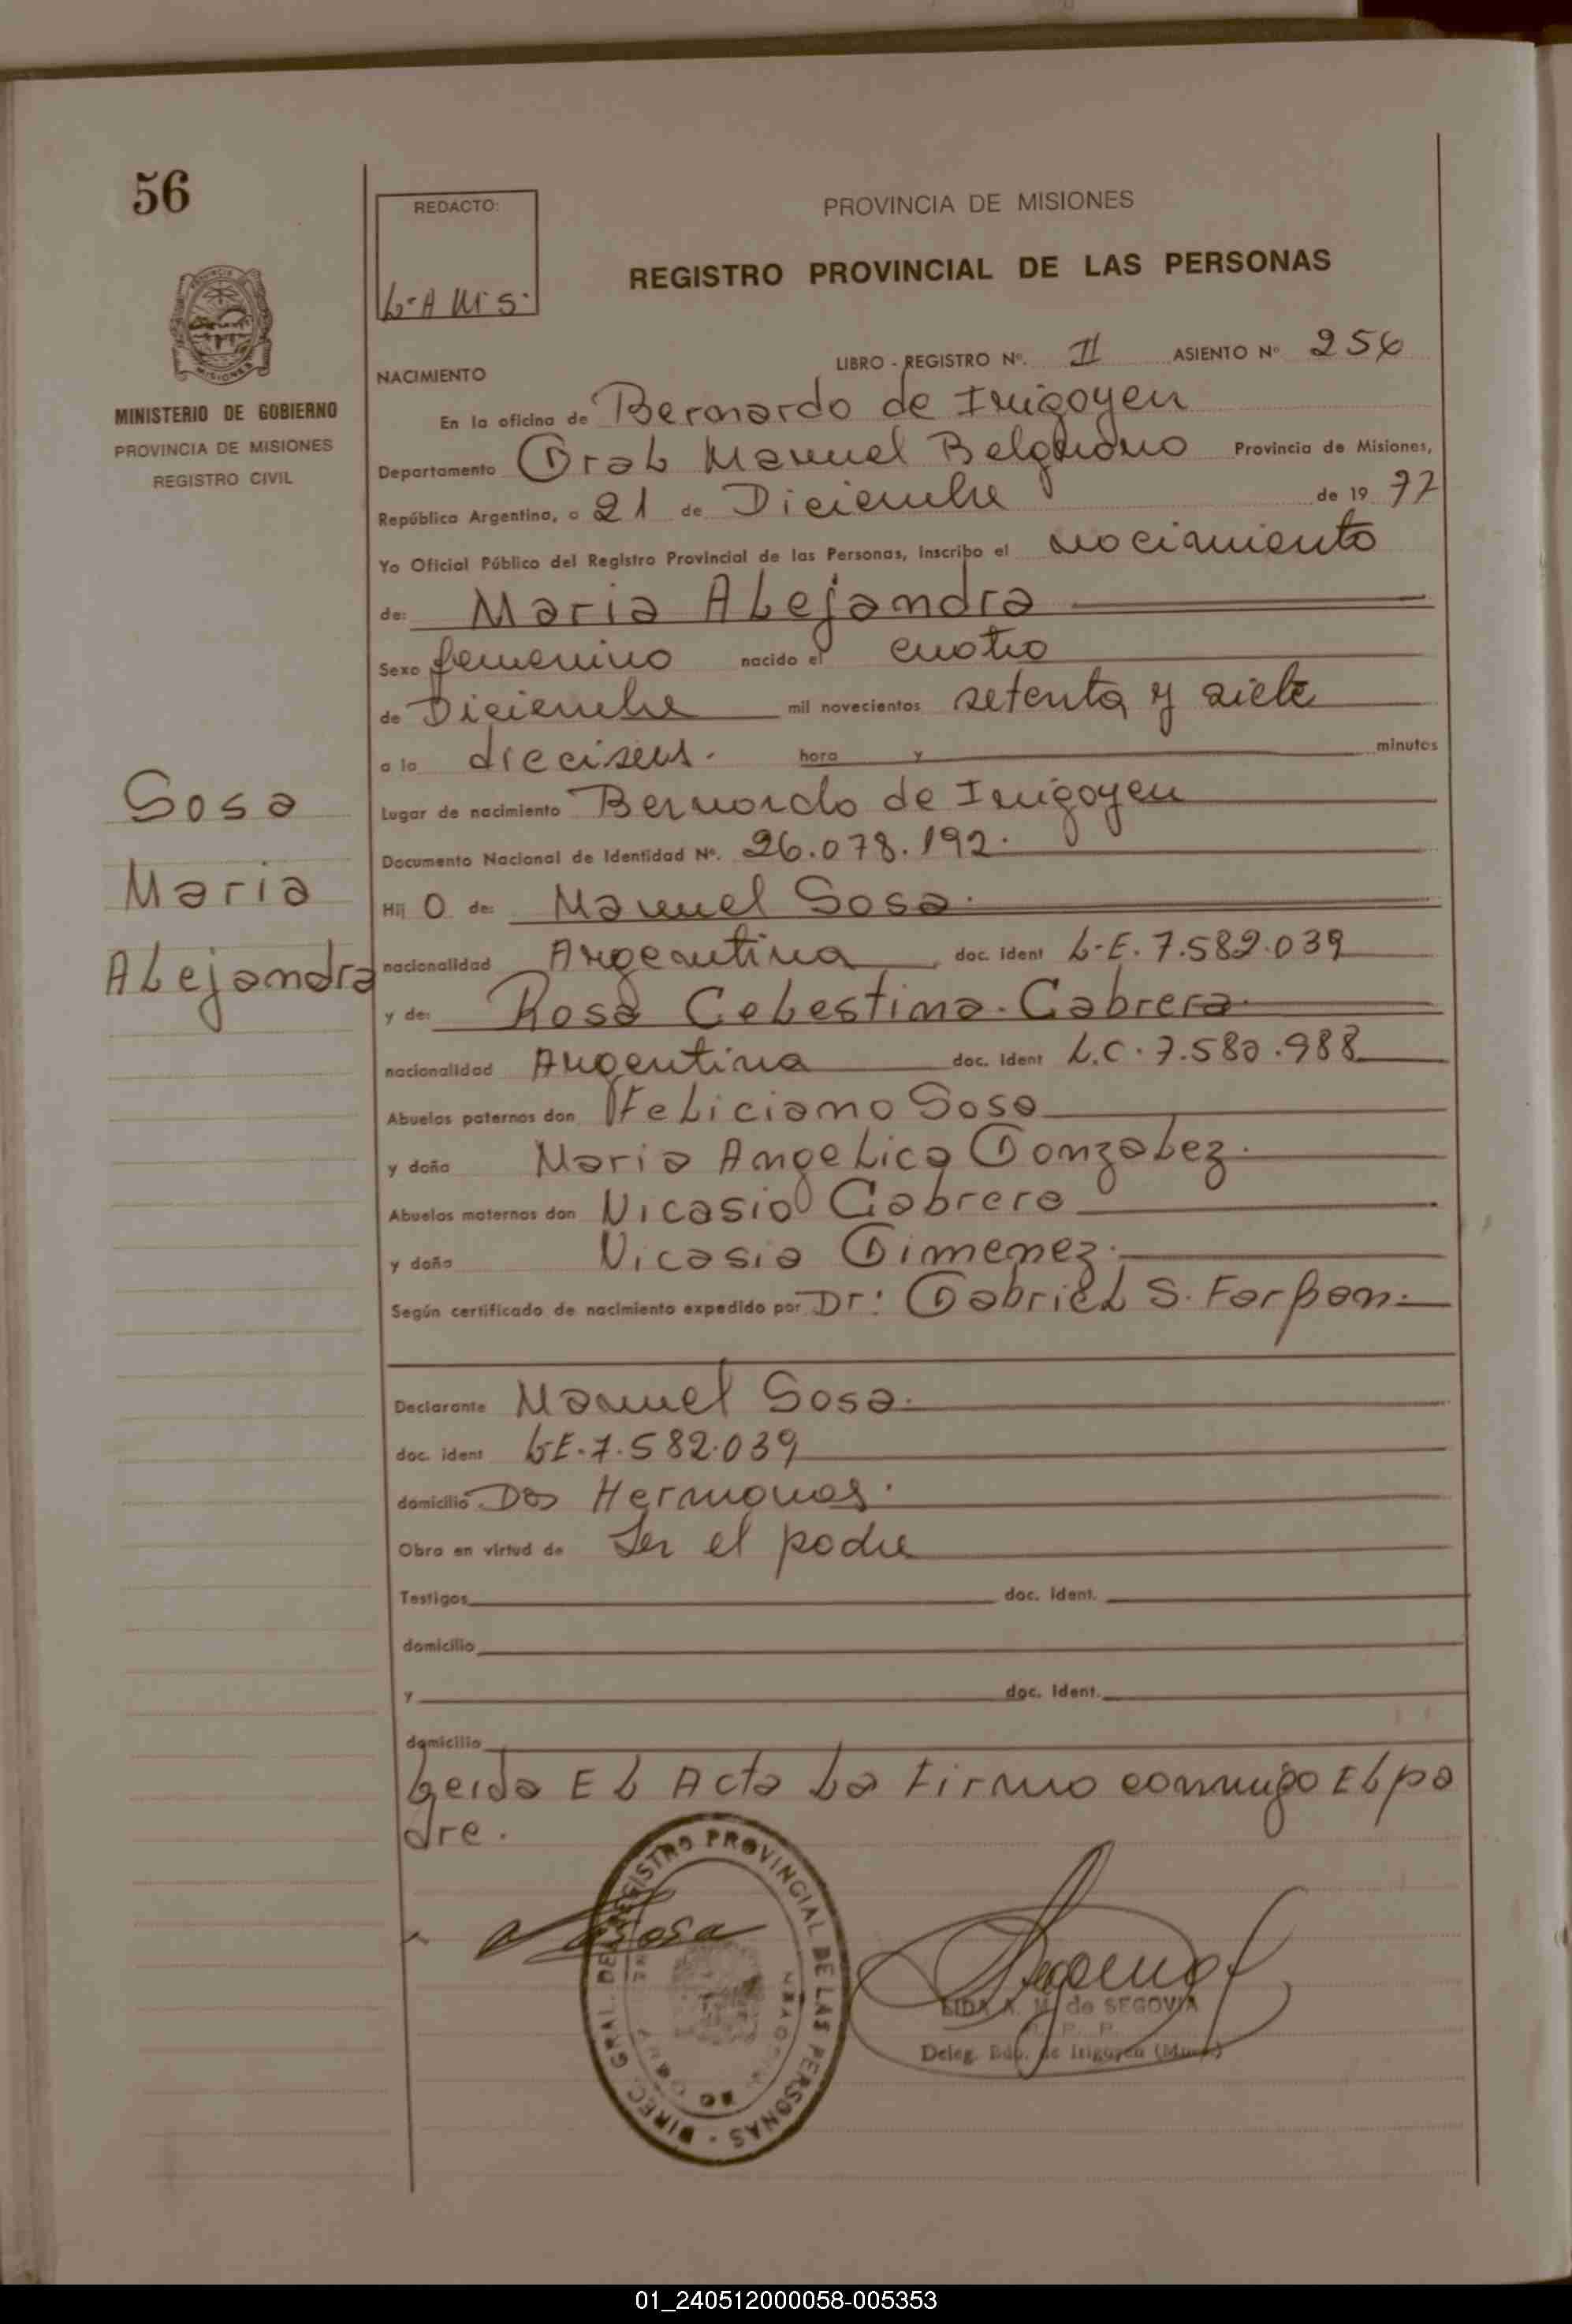 56
REDACTO:
L-A M S.
PROVINCIA DE MISIONES
REGISTRO PROVINCIAL DE LAS PERSONAS
MINISTERIO DE GOBIERNO
PROVINCIA DE MISIONES
REGISTRO CIVIL
NACIMIENTO
LIBRO - REGISTRO Nº. II ASIENTO Nº 256
En la oficina de Bernardo de Irigoyen
Departamento Gral Manuel Belgrano Provincia de Misiones,
República Argentina, a 21 de Diciembre de 19 77
Yo Oficial Público del Registro Provincial de las Personas, inscribo el nacimiento
de: Maria Alejandra
Sexo femenino nacido el cuatro
de Diciembre mil novecientos setenta y siete
a la dieciseis. hora y minutos
Lugar de nacimiento Bernardo de Irigoyen
Documento Nacional de Identidad Nº. 26.078.192.
Sosa
Maria
Alejandra
Hij O de: Manuel Sosa.
nacionalidad Argentina doc. ident L-E. 7.582.039
y de: Rosa Celestina. Cabrera.
nacionalidad Argentina doc. ident L.C. 7.580.988
Abuelos paternos don Feliciano Sosa
y doña Maria Angelica Gonzalez.
Abuelos maternos don Nicasio Cabrera
y doña Nicasia Gimenez.
Según certificado de nacimiento expedido por Dr: Gabriel S.
Declarante Manuel Sosa.
doc. ident LE. 7.582.039
domicilio Dos Hermanas.
Obra en virtud de Ser el padre
Testigos doc. ident.
domicilio
y doc. ident.
domicilio
Leida El Acta La Firma conmigo El pa
dre.
Sosa
DIREC. GRAL. DEL REGISTRO PROVINCIAL DE LAS PERSONAS
LIDA A. M. de SEGOVIA
Deleg. Bdo. de Irigoyen (Mnes.)
01_240512000058-005353